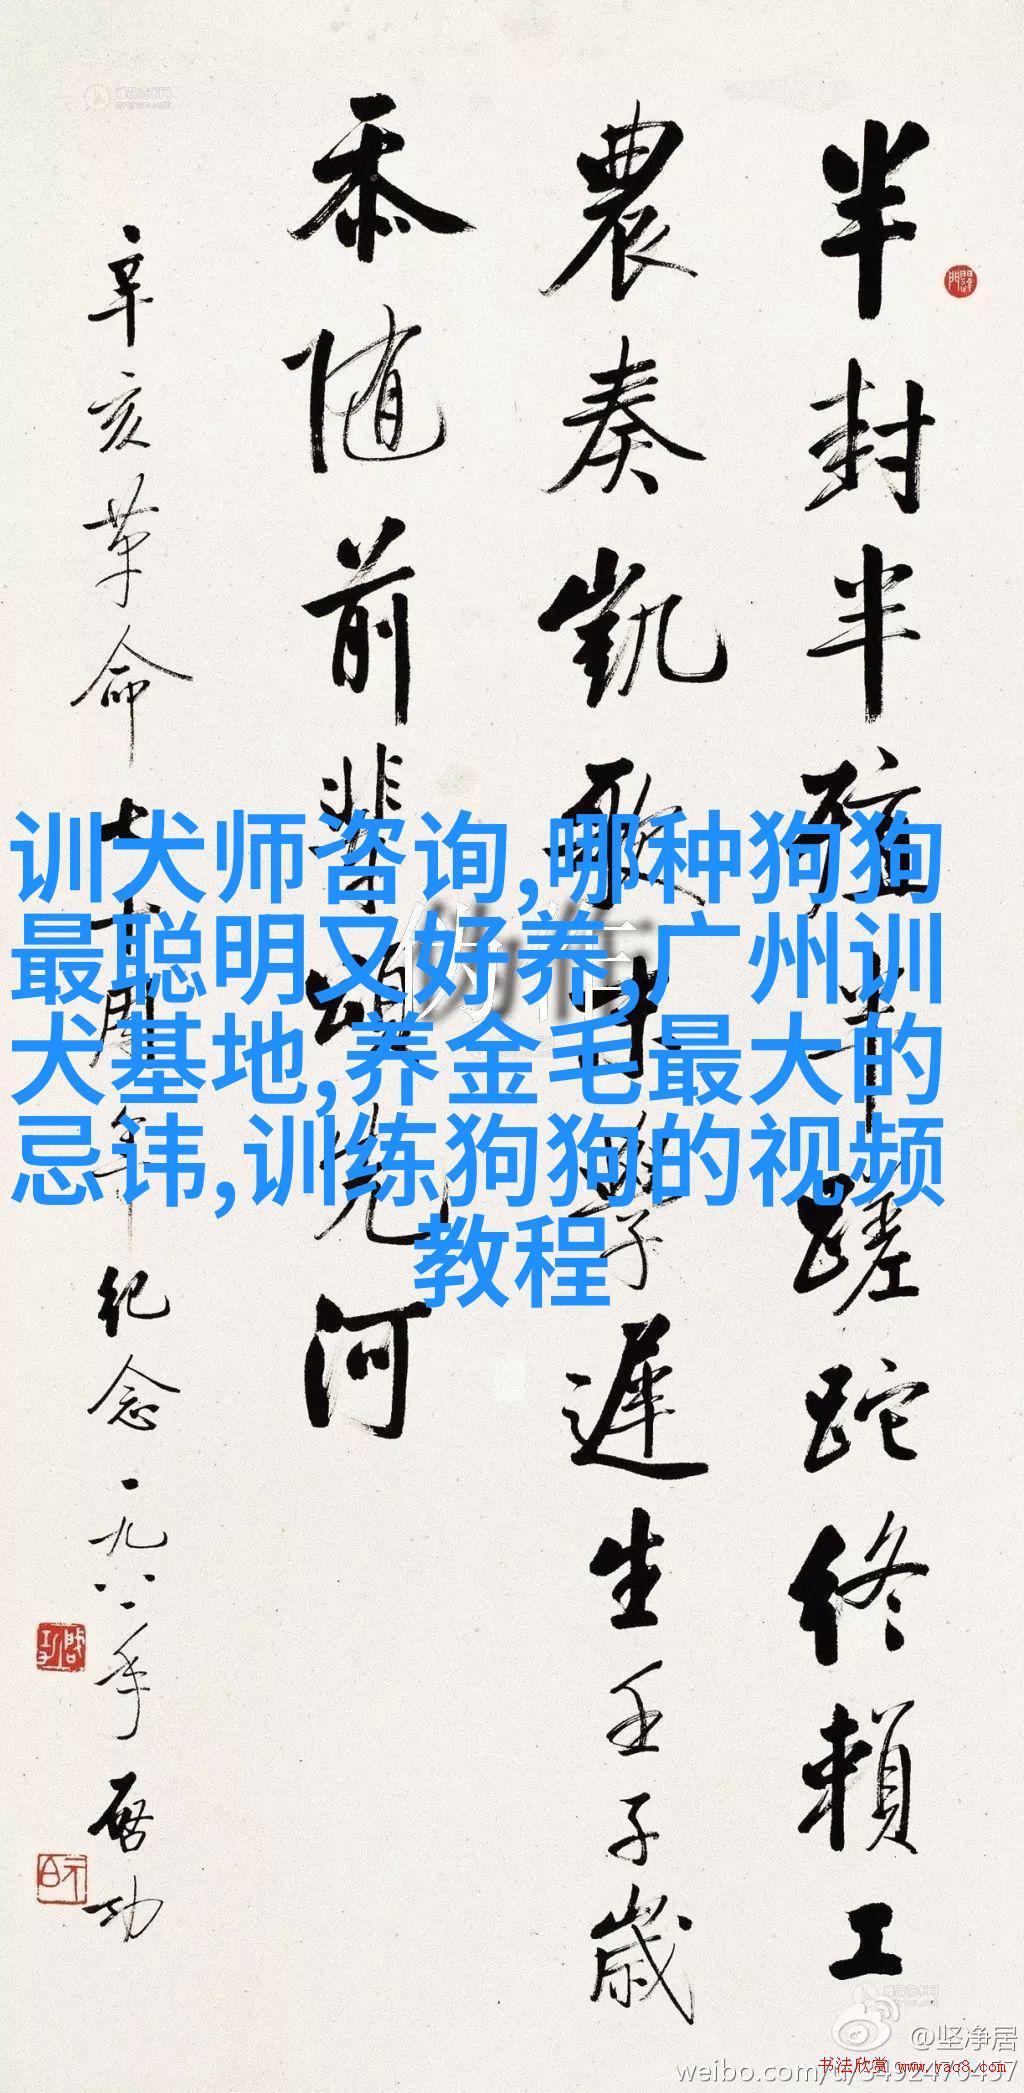 半封半殖半蹉跎終賴工
農奏凱歌末學遲生壬子歲
忝随前輩頌先河
辛亥革命七十周年紀念一九八一年啓功
训犬师咨询,哪种狗狗
最聪明又好养,广州训
犬基地,养金毛最大的
忌讳,训练狗狗的视频
教程
伪作
@坚净居
书法欣赏 www.yac8.com